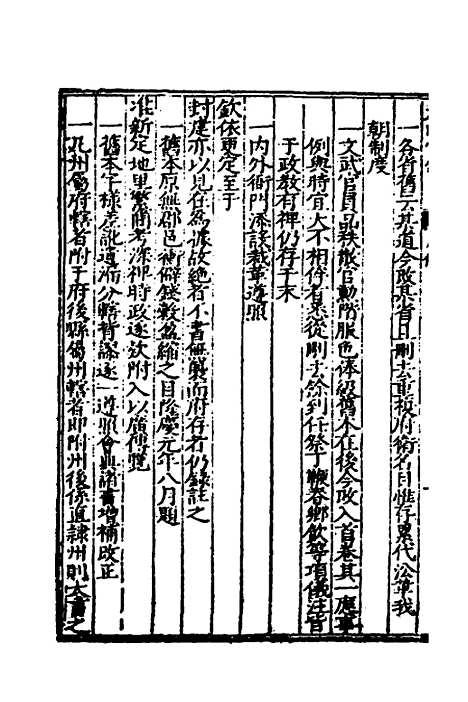 一各省舊云某道今改某省且刪去重複府衛名目惟存累代沿革我
朝制度
一文武官員品秩散官勳階服色体級舊本在後今改入首卷其一應事
例與時宜大不相侔者悉從刪去餘到任祭丁鞭春鄉飲等項儀注皆
于政教有裨仍存于末
一內外衙門添設裁革遵照
欽依更定至于
封建亦以見在為據故絕者不書無襲而府存者仍錄註之
一舊本原無郡邑神僻錢穀盈縮之目隆慶元年八月題
准新定地里繁簡考深裨時政逐欵附入以廣便覽
一舊本字樣差訛道溯分轄背謬逐一遵照會典諸書增補改正
一凡州屬府轄者附于府後縣屬州轄者即附州後係直隸州則大書之